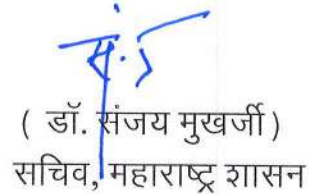 ( डॉ. संजय मुखर्जी )
सचिव, महाराष्ट्र शासन